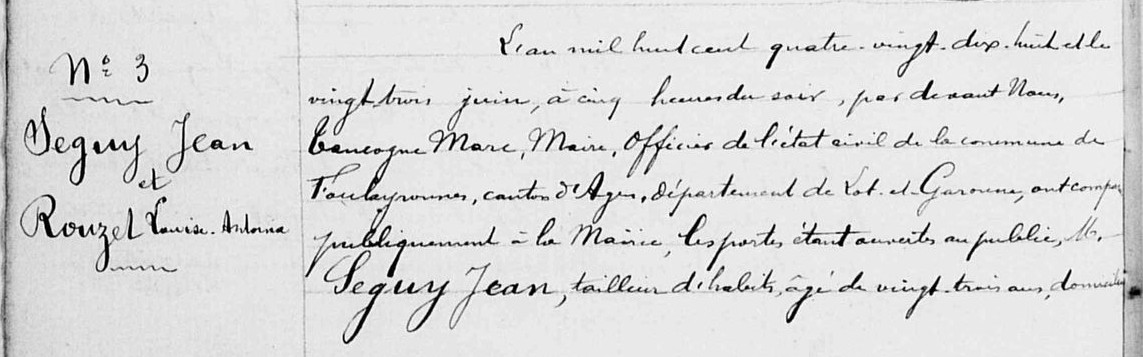 Nº 3
Seguy Jean
et
Rouzet Louise-Antonia
L'an mil huit cent quatre-vingt-dix-huit et le
vingt trois juin, à cinq heures du soir, par devant Nous,
Marc, Maire, Officier de l'état civil de la commune de
Foulayronnes, canton d'Agen, département de Lot-et-Garonne, ont compar
publiquement à la Mairie, les portes étant ouvertes au public, M.
Seguy Jean, tailleur d'habits, âgé de vingt-trois ans, domicilié